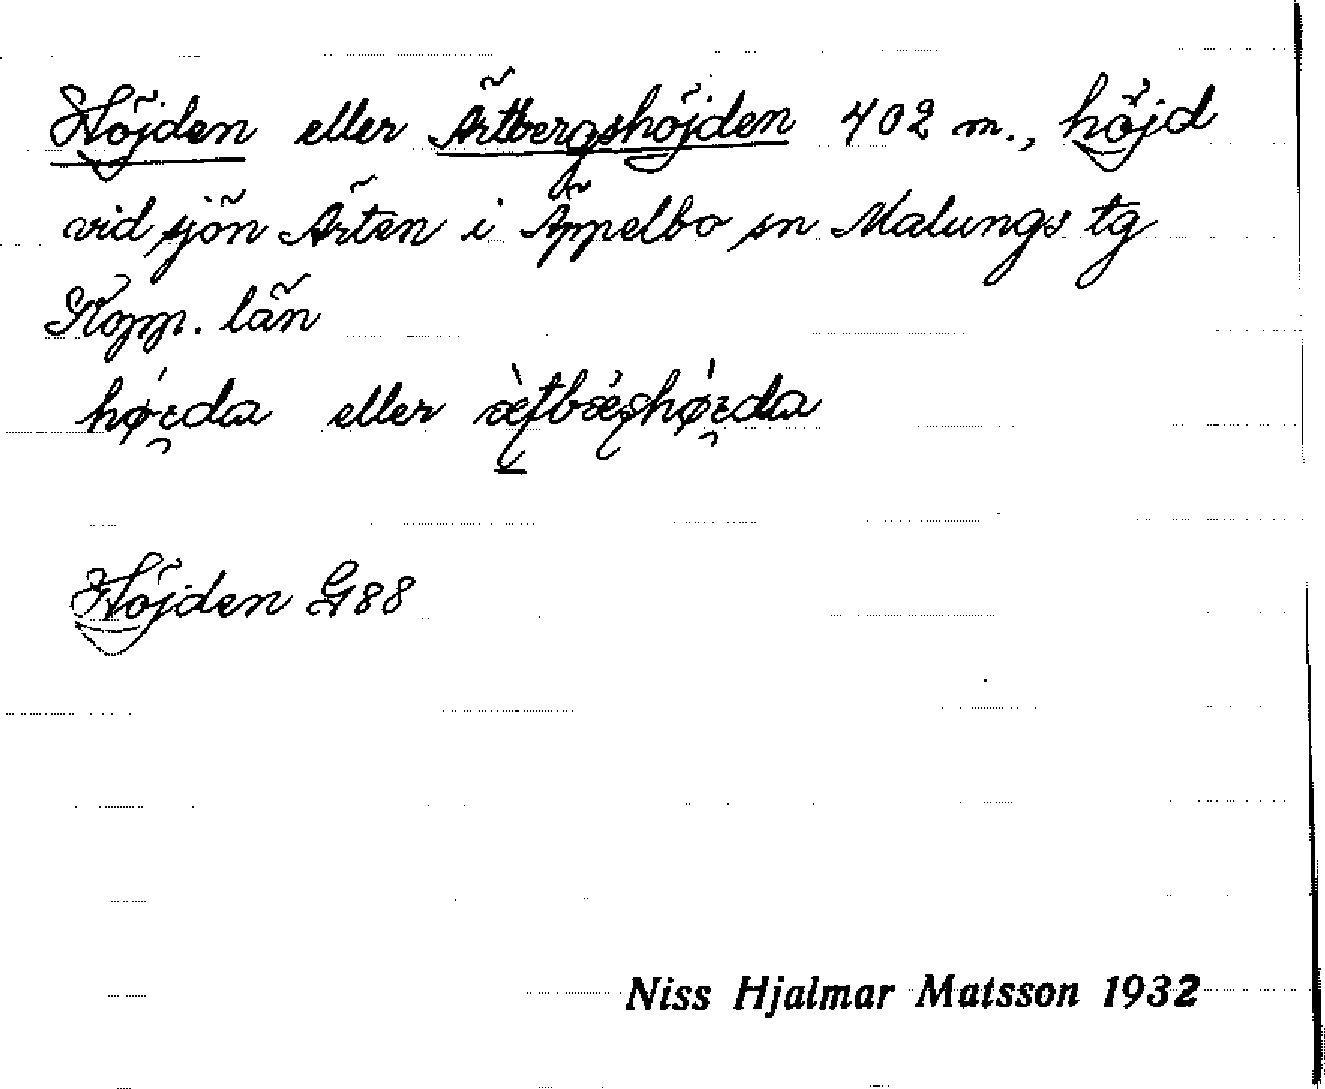 Höjden eller Ärtbergshöjden 402 m., höjd
vid sjön Ärten i Äppelbo sn Malungs tg
Kopp. län
eller
Höjden G88
Niss Hjalmar Matsson 1932